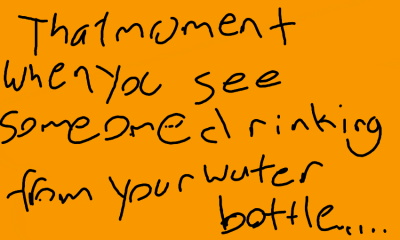 That moment
when you see
someome drinking
from your water
bottle.....